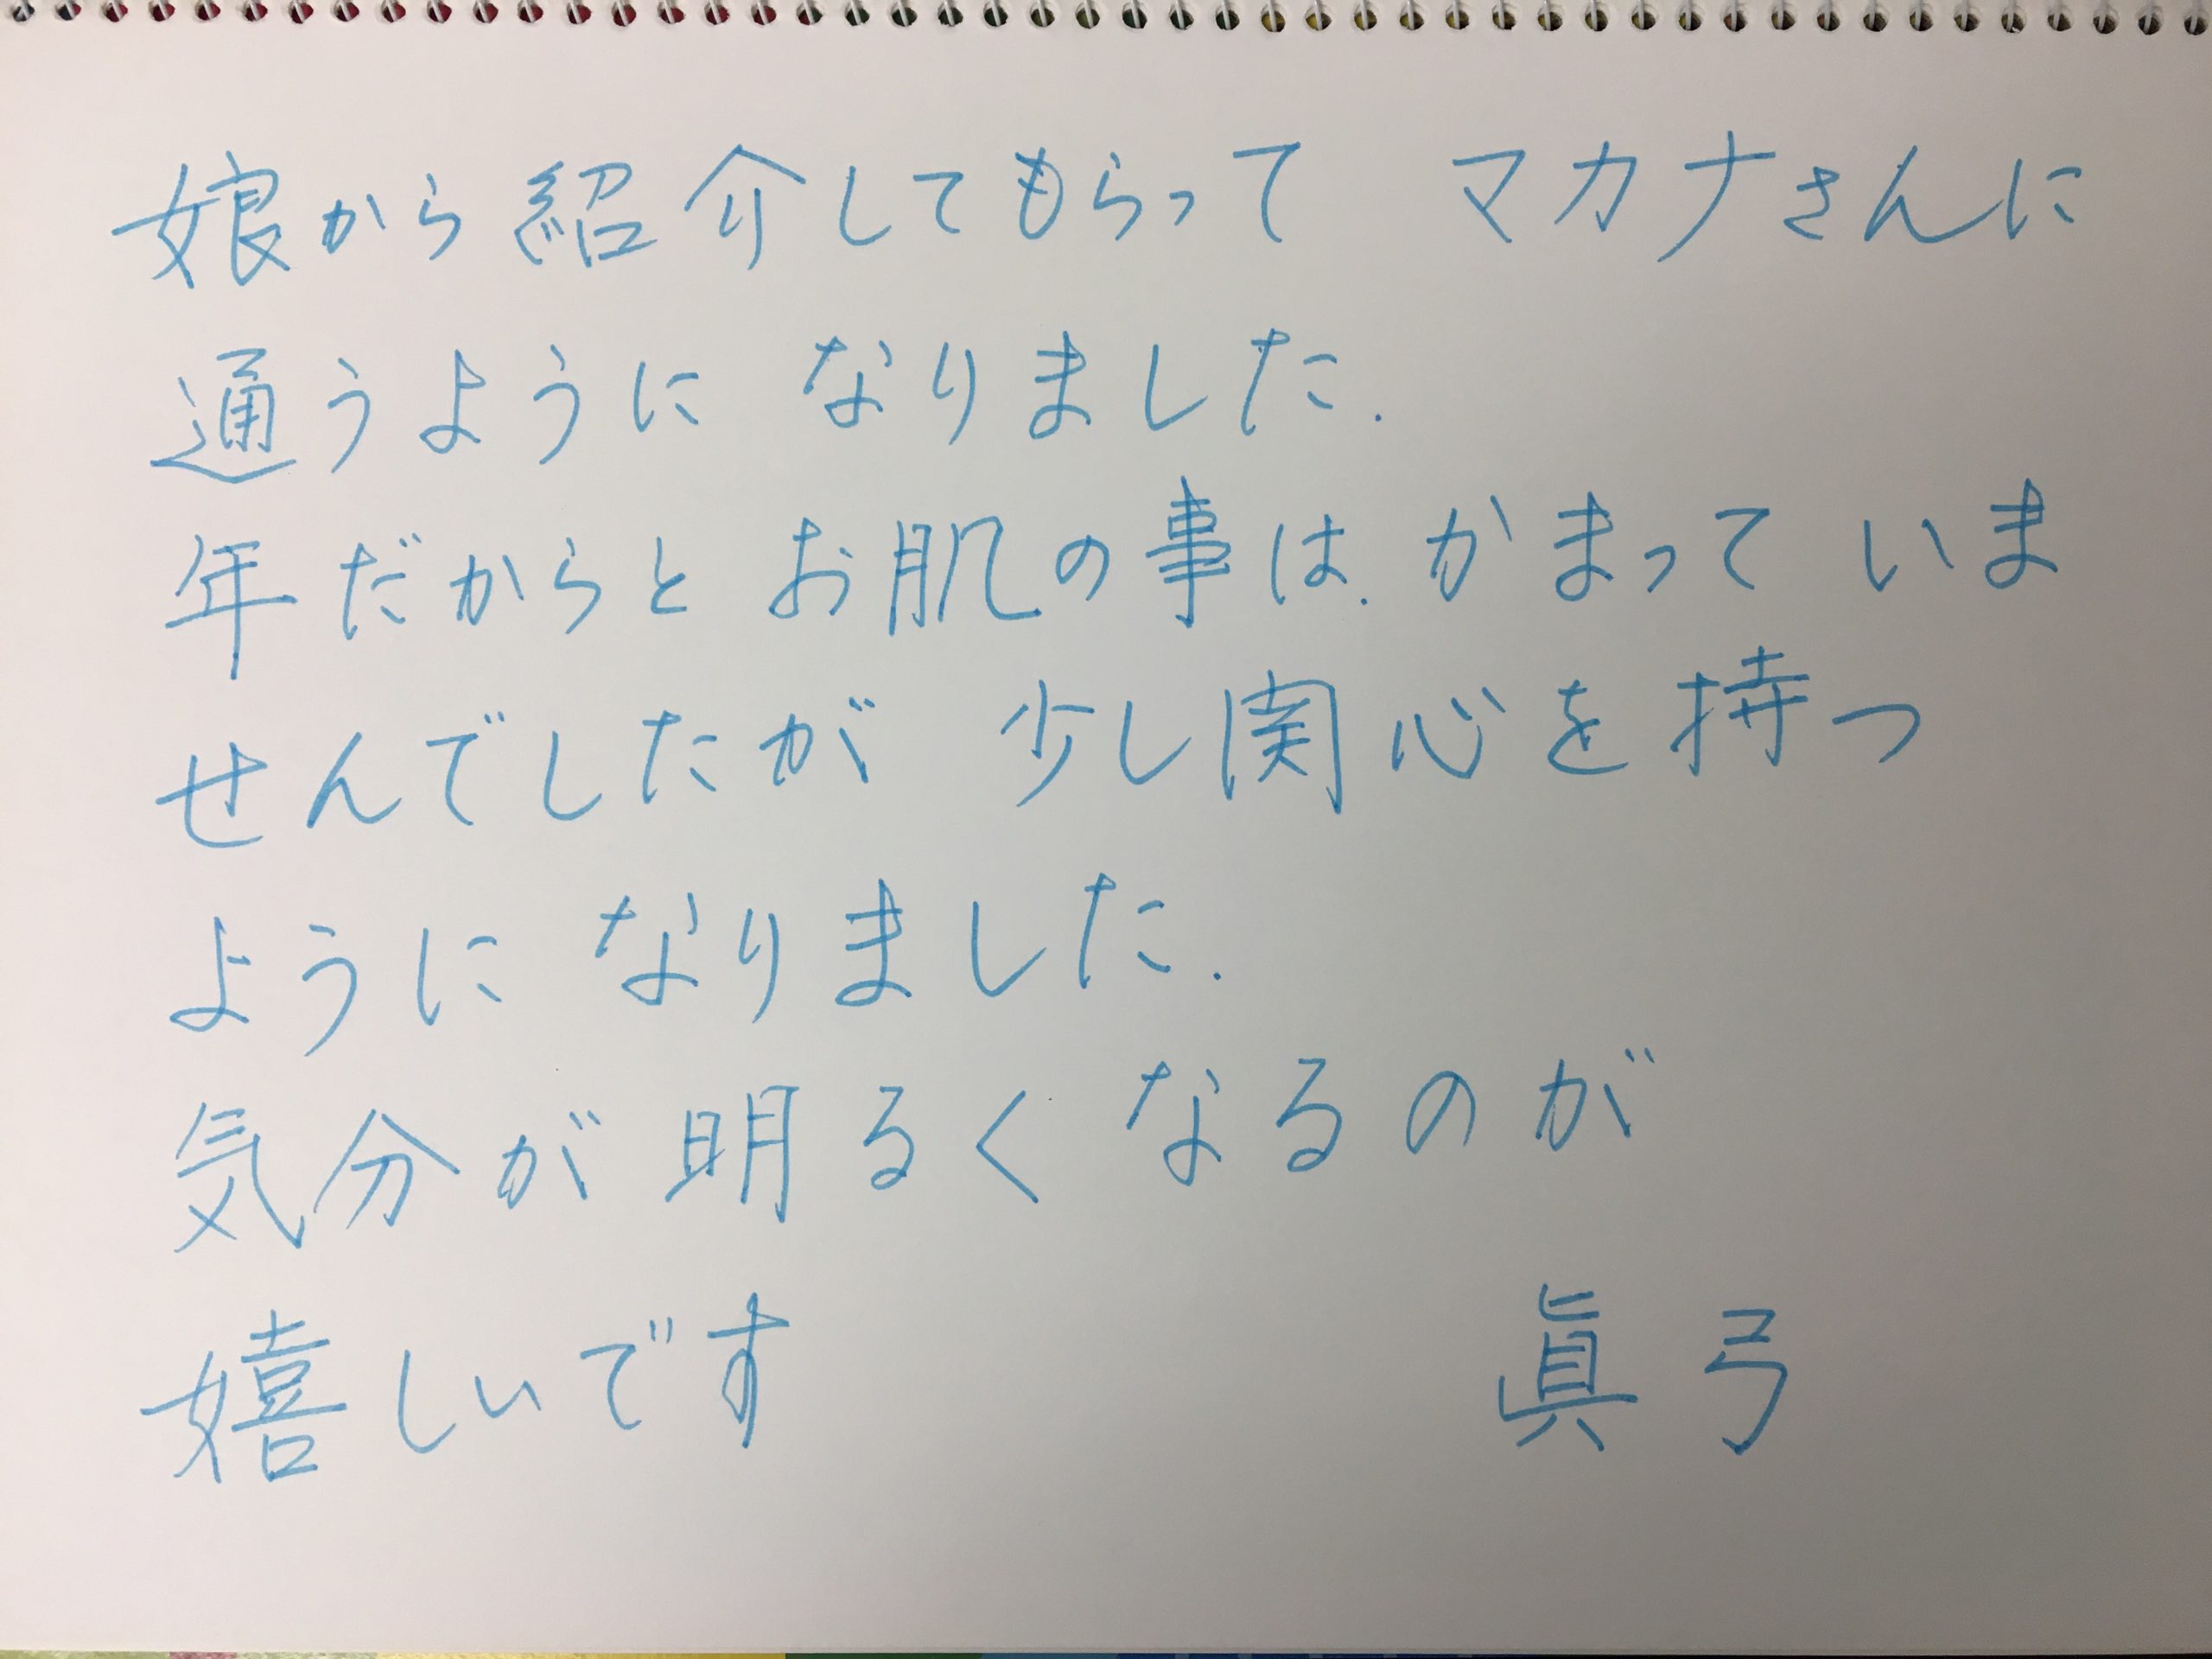 娘から紹介してもらって マカナさんに
通うように なりました.
年だからと お肌の事は. かまって いま
せんでしたが 少し関心を持つ
ように なりました.
気分が明るく なるのが
嬉しいです 眞弓